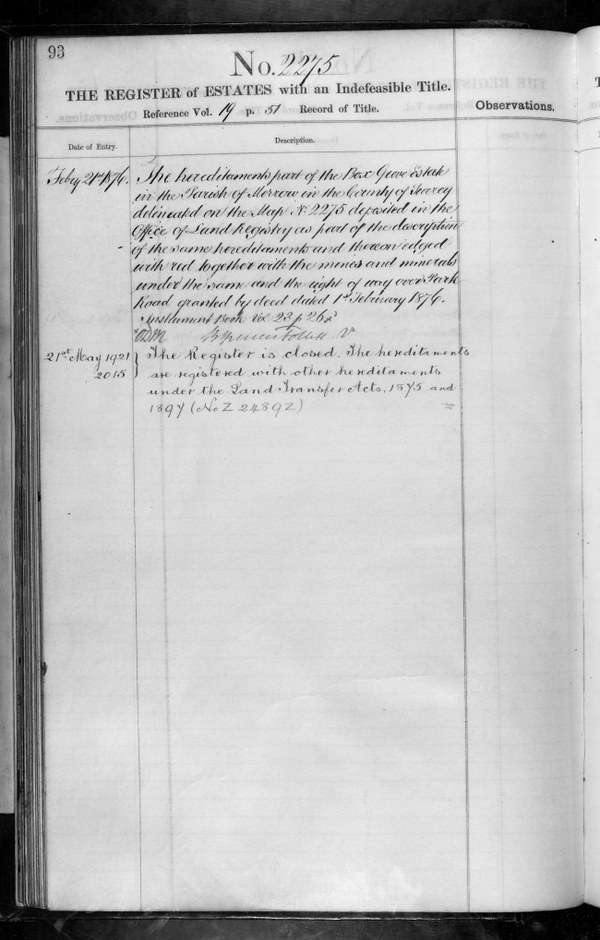 93
No. 2275
THE REGISTER of ESTATES with an Indefeasible Title.
Reference Vol. 19 p. 51 Record of Title.
Observations.
Date of Entry.
Description.
Feby 21st 1876. The hereditaments part of the Box Grove Estate
in the Parish of Merrow in the County of Surrey
delineated on the Map No 2275 deposited in the
Office of Land Registry as part of the description
of the same hereditaments and thereon edged
with red together with the mines and minerals
under the same and the right of way over Park
Road granted by deed dated 1st February 1876.
Instrument Book Vol 23 p 262
21st May 1921 } The Register is closed. The hereditaments
2015 } are registered with other hereditaments
under the Land Transfer Acts, 1875 and
1897 (No Z 2489Z)